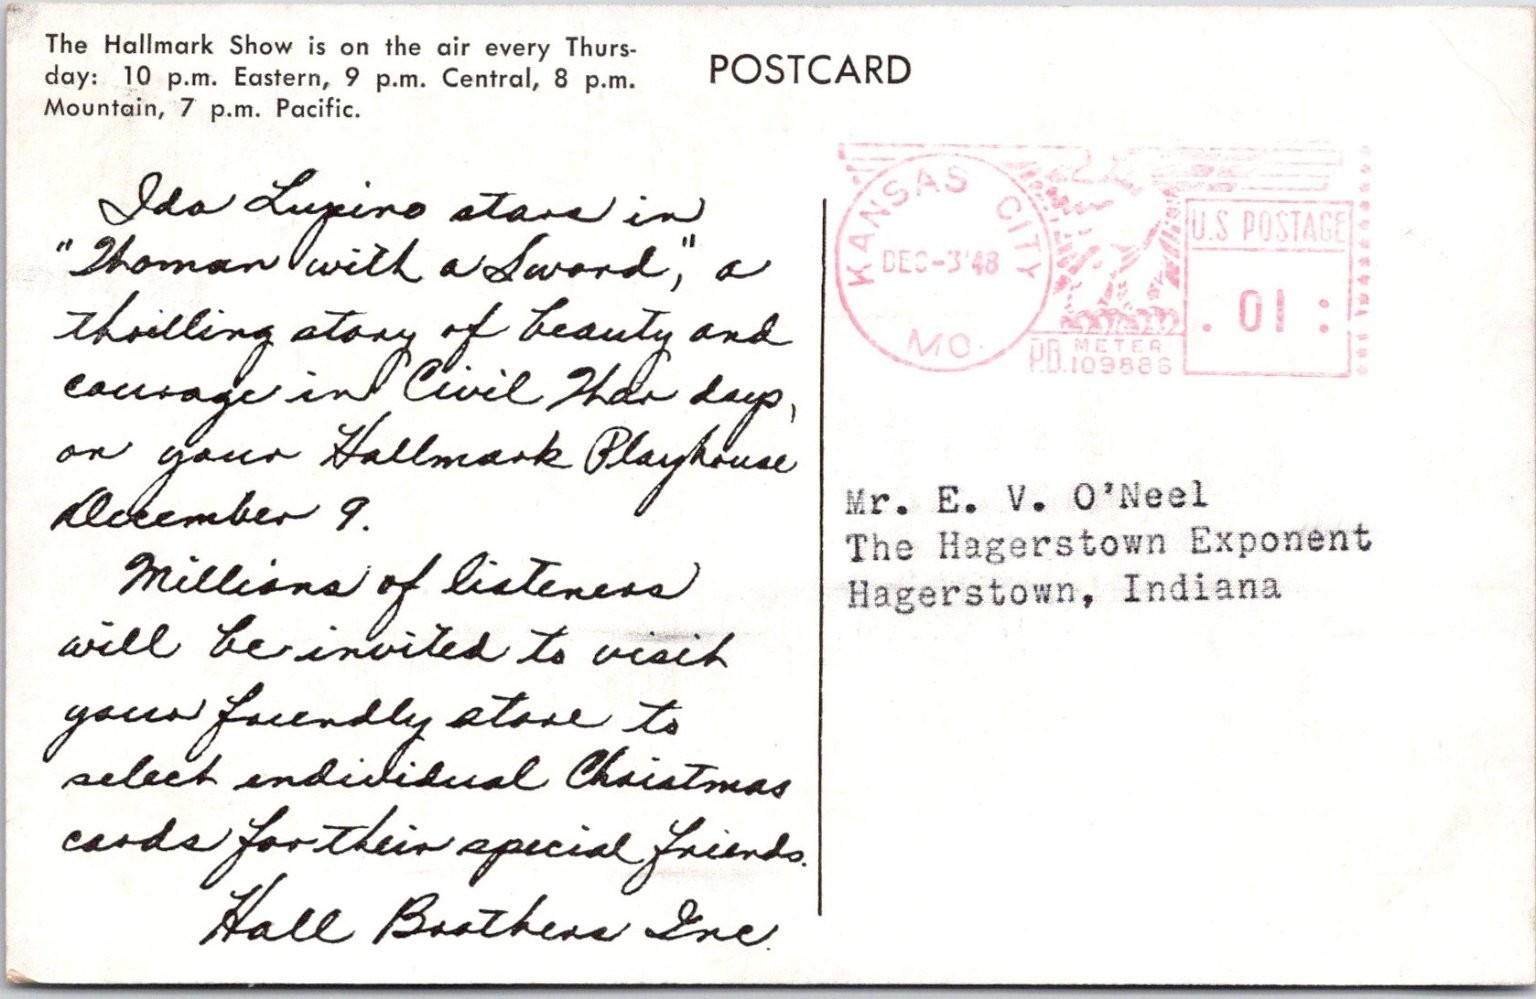 The Hallmark Show is on the air every Thurs-
day: 10 p.m. Eastern, 9 p.m. Central, 8 p.m.
Mountain, 7 p.m. Pacific.
POSTCARD
Ida Lupino stars in
"Woman with a Sword," a
thrilling story of beauty and
courage in Civil War days,
on your Hallmark Playhouse
December 9.
Millions of listeners
will be invited to visit
your friendly store to
select individual Christmas
cards for their special friends.
Hall Brothers Inc.
KANSAS CITY
DEC-3'48
MO.
U.S POSTAGE
.01
P.B. METER
109886
Mr. E. V. O'Neel
The Hagerstown Exponent
Hagerstown, Indiana